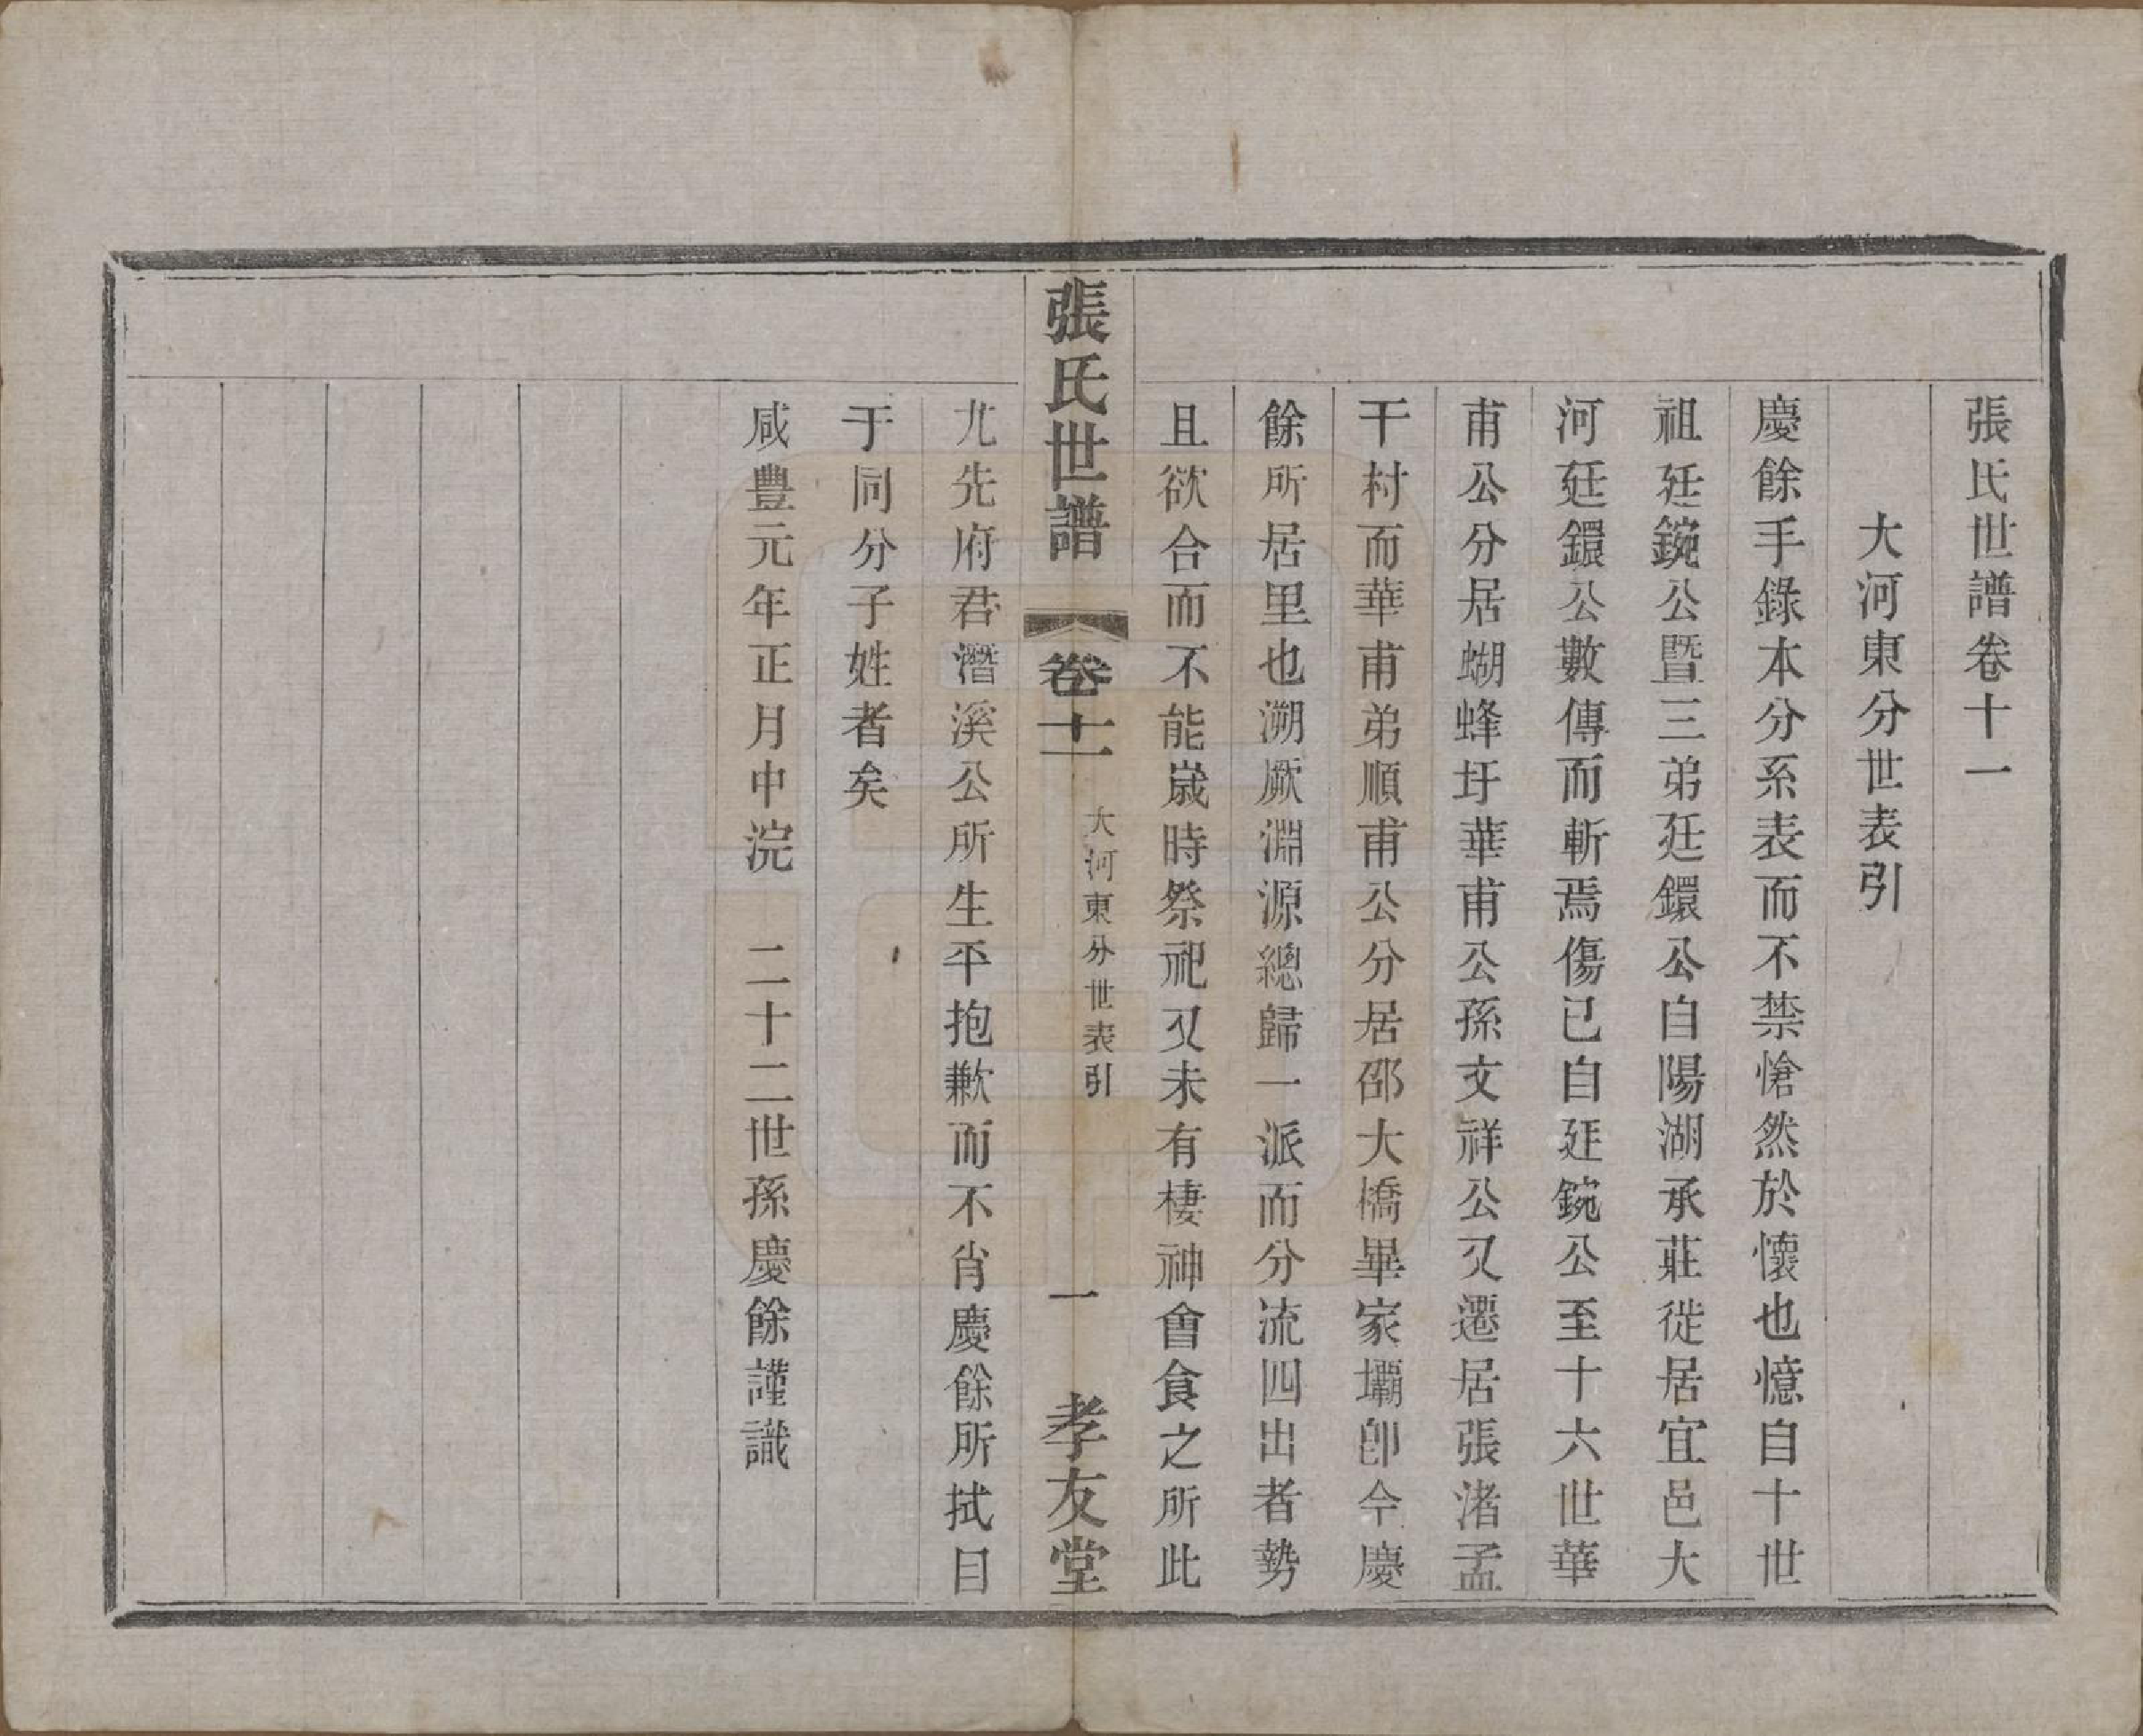 張氏世譜卷十一
大河東分世表引
慶餘手錄本分系表而不禁愴然於懷也憶自十世
祖廷鋺公暨三弟廷鐶公自陽湖承莊徙居宜邑大
河廷鐶公數傳而斬焉傷已自廷鋺公至十六世華
甫公分居蝴蜂圩華甫公孫文祥公又遷居張渚孟
干村而華甫弟順甫公分居邵大橋畢家壩卽今慶
餘所居里也溯厥淵源總歸一派而分流四出者勢
且欲合而不能歲時祭祀又未有棲神會食之所此
張氏世譜 卷十一 大河東分世表引 一 孝友堂
尤先府君潛溪公所生平抱歉而不肖慶餘所拭目
于同分子姓者矣
咸豊元年正月中浣 二十二世孫慶餘謹識